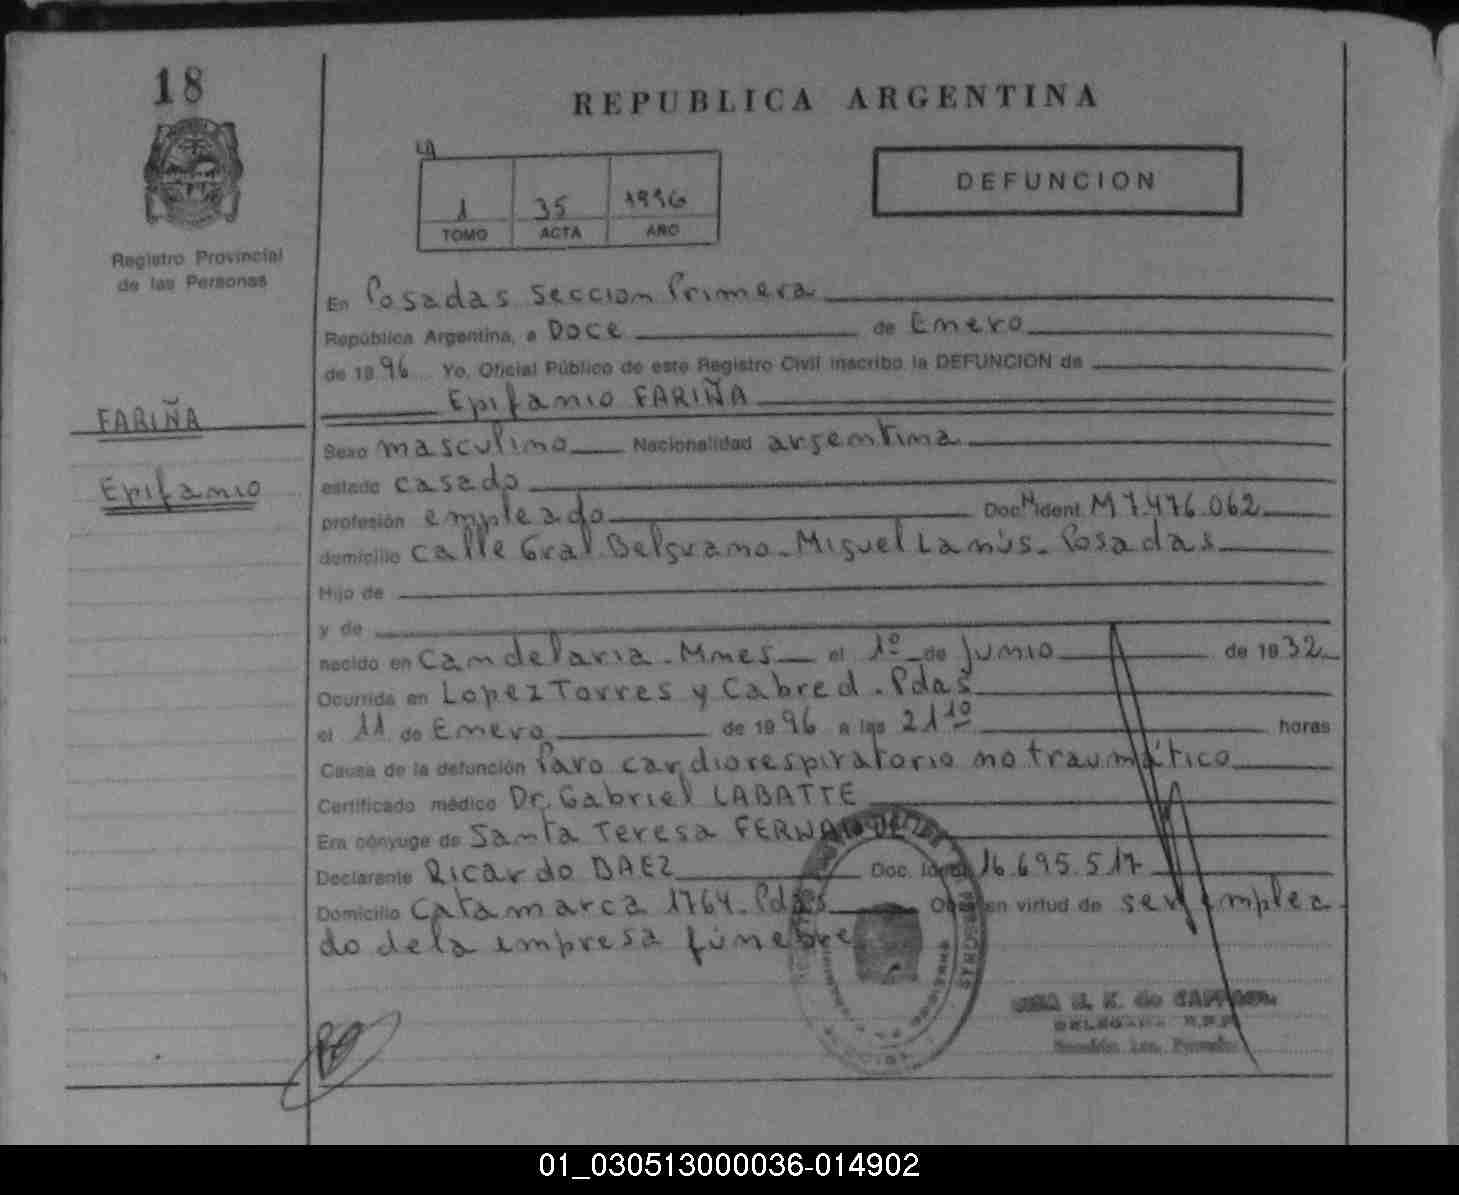 18
REPUBLICA ARGENTINA
DEFUNCION
1 35 1996
TOMO ACTA AÑO
Registro Provincial
de las Personas
En Posadas Seccion Primera
República Argentina, a Doce de Enero
de 1996 Yo, Oficial Público de este Registro Civil inscribo la DEFUNCION de
Epifanio FARIÑA
FARIÑA
Epifanio
Sexo masculino Nacionalidad argentina
estado casado
profesión empleado Doc. Ident. M 7.476.062
domicilio calle Gral. Belgrano - Miguel Lanús - Posadas
Hijo de
y de
nacido en Candelaria - Mnes el 1º de Junio de 1932
Ocurrida en Lopez Torres y Cabred - Pdas
el 11 de Enero de 1996 a las 21 10 horas
Causa de la defunción Paro cardiorespiratorio no traumático
Certificado médico Dr. Gabriel LABATTE
Era cónyuge de Santa Teresa
Declarante Ricardo BAEZ Doc. Ident. 16.695.517
Domicilio Catamarca 1764 - Pdas Obra en virtud de ser emplea
do de la empresa fúnebre
01_030513000036-014902